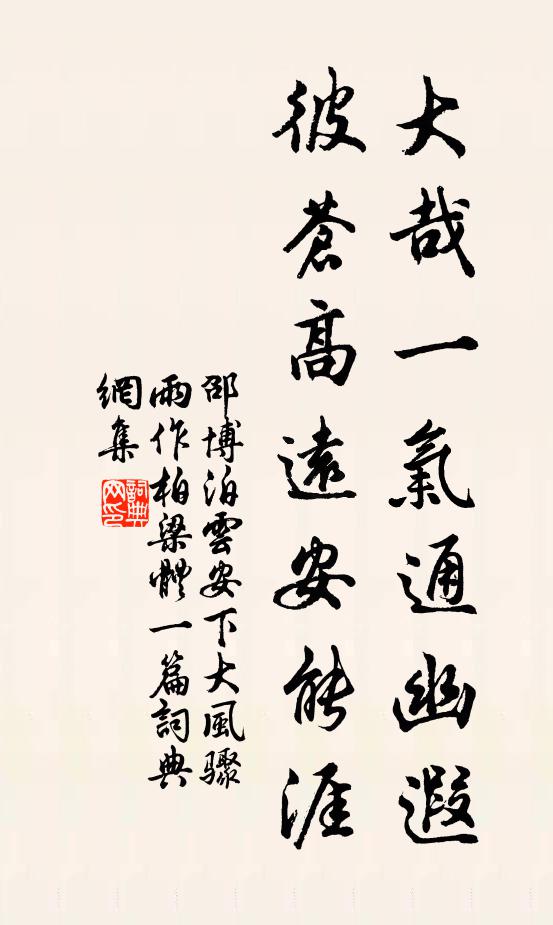 大哉一氣通幽遐
彼蒼高遠安能涯
邵博泊雲安下大風驟
雨作柏梁體一篇詞典
網集
詞典網印